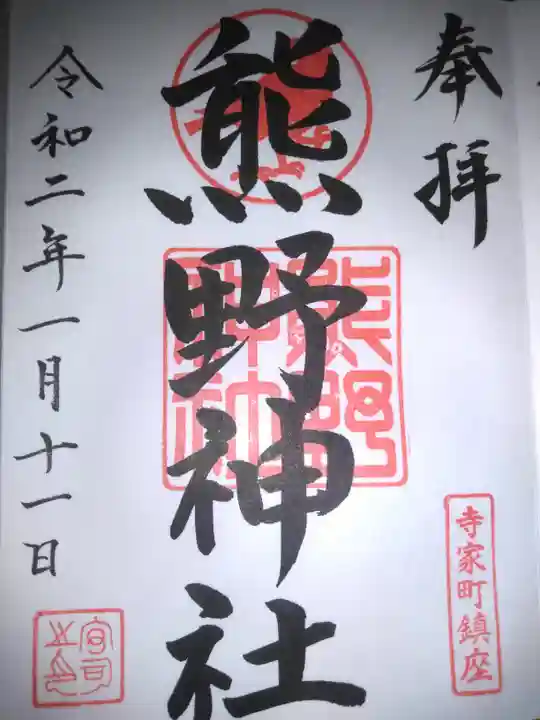 奉拝
寺家町鎮座
熊野神社
熊野神社
令和二年一月十一日
宮司之印